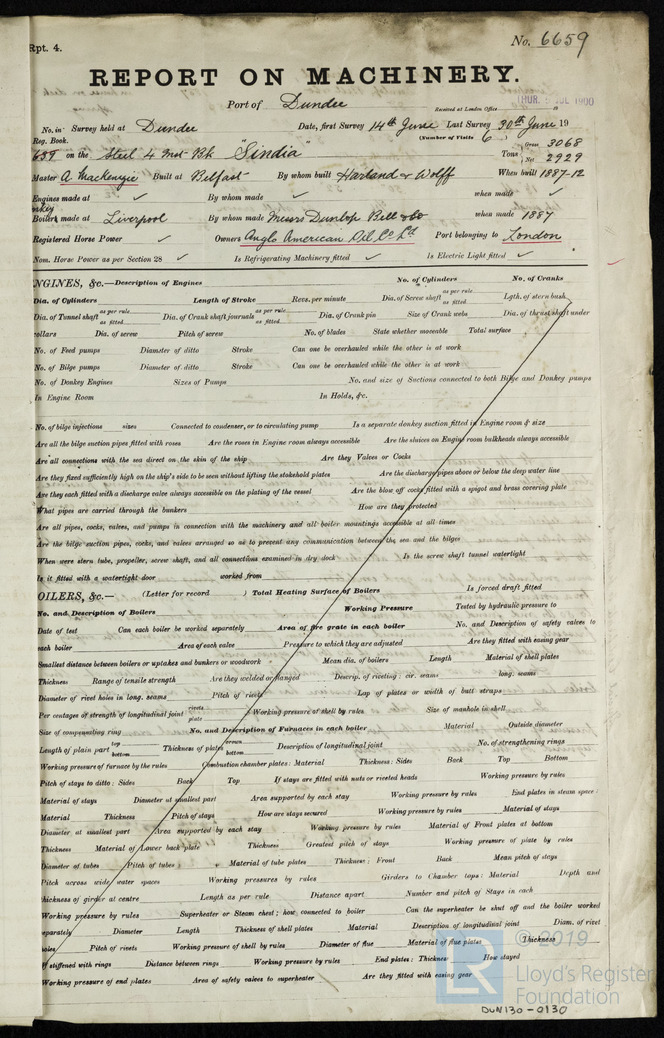 Rpt. 4.
No. 6659
REPORT ON MACHINERY.
Port of Dundee
Received at London Office THUR. 5 JUL 1900
No. in Survey held at Dundee Date, first Survey 14th June Last Survey 30th June 19
Reg. Book. (Number of Visits 6 )
639 on the Steel 4 Mst Bk "Sindia" Tons Gross 3068 Net 2929
Master A Mackenzie Built at Belfast By whom built Harland & Wolff When built 1887-12
Engines made at ✓ By whom made ✓ when made ✓
Boilers made at Liverpool By whom made Messrs Dunlop Bell & Co when made 1887
Registered Horse Power ✓ Owners Anglo American Oil Co Ld Port belonging to London
Nom. Horse Power as per Section 28 ✓ Is Refrigerating Machinery fitted ✓ Is Electric Light fitted ✓
NGINES, &c.—Description of Engines No. of Cylinders No. of Cranks
Dia. of Cylinders Length of Stroke Revs. per minute Dia. of Screw shaft as per rule as fitted Lgth. of stern bush
Dia. of Tunnel shaft as per rule as fitted Dia. of Crank shaft journals as per rule as fitted Dia. of Crank pin Size of Crank webs Dia. of thrust shaft under
collars Dia. of screw Pitch of screw No. of blades State whether moveable Total surface
No. of Feed pumps Diameter of ditto Stroke Can one be overhauled while the other is at work
No. of Bilge pumps Diameter of ditto Stroke Can one be overhauled while the other is at work
No. of Donkey Engines Sizes of Pumps No. and size of Suctions connected to both Bilge and Donkey pumps
In Engine Room In Holds, &c.
No. of bilge injections sizes Connected to condenser, or to circulating pump Is a separate donkey suction fitted in Engine room & size
Are all the bilge suction pipes fitted with roses Are the roses in Engine room always accessible Are the sluices on Engine room bulkheads always accessible
Are all connections with the sea direct on the skin of the ship Are they Valves or Cocks
Are they fixed sufficiently high on the ship's side to be seen without lifting the stokehold plates Are the discharge pipes above or below the deep water line
Are they each fitted with a discharge valve always accessible on the plating of the vessel Are the blow off cocks fitted with a spigot and brass covering plate
What pipes are carried through the bunkers How are they protected
Are all pipes, cocks, valves, and pumps in connection with the machinery and all boiler mountings accessible at all times
Are the bilge suction pipes, cocks, and valves arranged so as to prevent any communication between the sea and the bilges
When were stern tube, propeller, screw shaft, and all connections examined in dry dock Is the screw shaft tunnel watertight
Is it fitted with a watertight door worked from
OILERS, &c.— (Letter for record ) Total Heating Surface of Boilers Is forced draft fitted
No. and Description of Boilers Working Pressure Tested by hydraulic pressure to
Date of test Can each boiler be worked separately Area of fire grate in each boiler No. and Description of safety valves to
each boiler Area of each valve Pressure to which they are adjusted Are they fitted with easing gear
Smallest distance between boilers or uptakes and bunkers or woodwork Mean dia. of boilers Length Material of shell plates
Thickness Range of tensile strength Are they welded or flanged Descrip. of riveting: cir. seams long. seams
Diameter of rivet holes in long. seams Pitch of rivets Lap of plates or width of butt straps
Per centages of strength of longitudinal joint rivets plate Working pressure of shell by rules Size of manhole in shell
Size of compensating ring No. and Description of Furnaces in each boiler Material Outside diameter
Length of plain part top bottom Thickness of plates crown bottom Description of longitudinal joint No. of strengthening rings
Working pressure of furnace by the rules Combustion chamber plates: Material Thickness: Sides Back Top Bottom
Pitch of stays to ditto: Sides Back Top If stays are fitted with nuts or riveted heads Working pressure by rules
Material of stays Diameter at smallest part Area supported by each stay Working pressure by rules End plates in steam space
Material Thickness Pitch of stays How are stays secured Working pressure by rules Material of stays
Diameter at smallest part Area supported by each stay Working pressure by rules Material of Front plates at bottom
Thickness Material of Lower back plate Thickness Greatest pitch of stays Working pressure of plate by rules
Diameter of tubes Pitch of tubes Material of tube plates Thickness: Front Back Mean pitch of stays
Pitch across wide water spaces Working pressures by rules Girders to Chamber tops: Material Depth and
thickness of girder at centre Length as per rule Distance apart Number and pitch of Stays in each
Working pressure by rules Superheater or Steam chest; how connected to boiler Can the superheater be shut off and the boiler worked
separately Diameter Length Thickness of shell plates Material Description of longitudinal joint Diam. of rivet
holes Pitch of rivets Working pressure of shell by rules Diameter of flue Material of flue plates Thickness
If stiffened with rings Distance between rings Working pressure by rules End plates: Thickness How stayed
Working pressure of end plates Area of safety valves to superheater Are they fitted with easing gear
© 2019
Lloyd's Register
Foundation
DUN130-0130